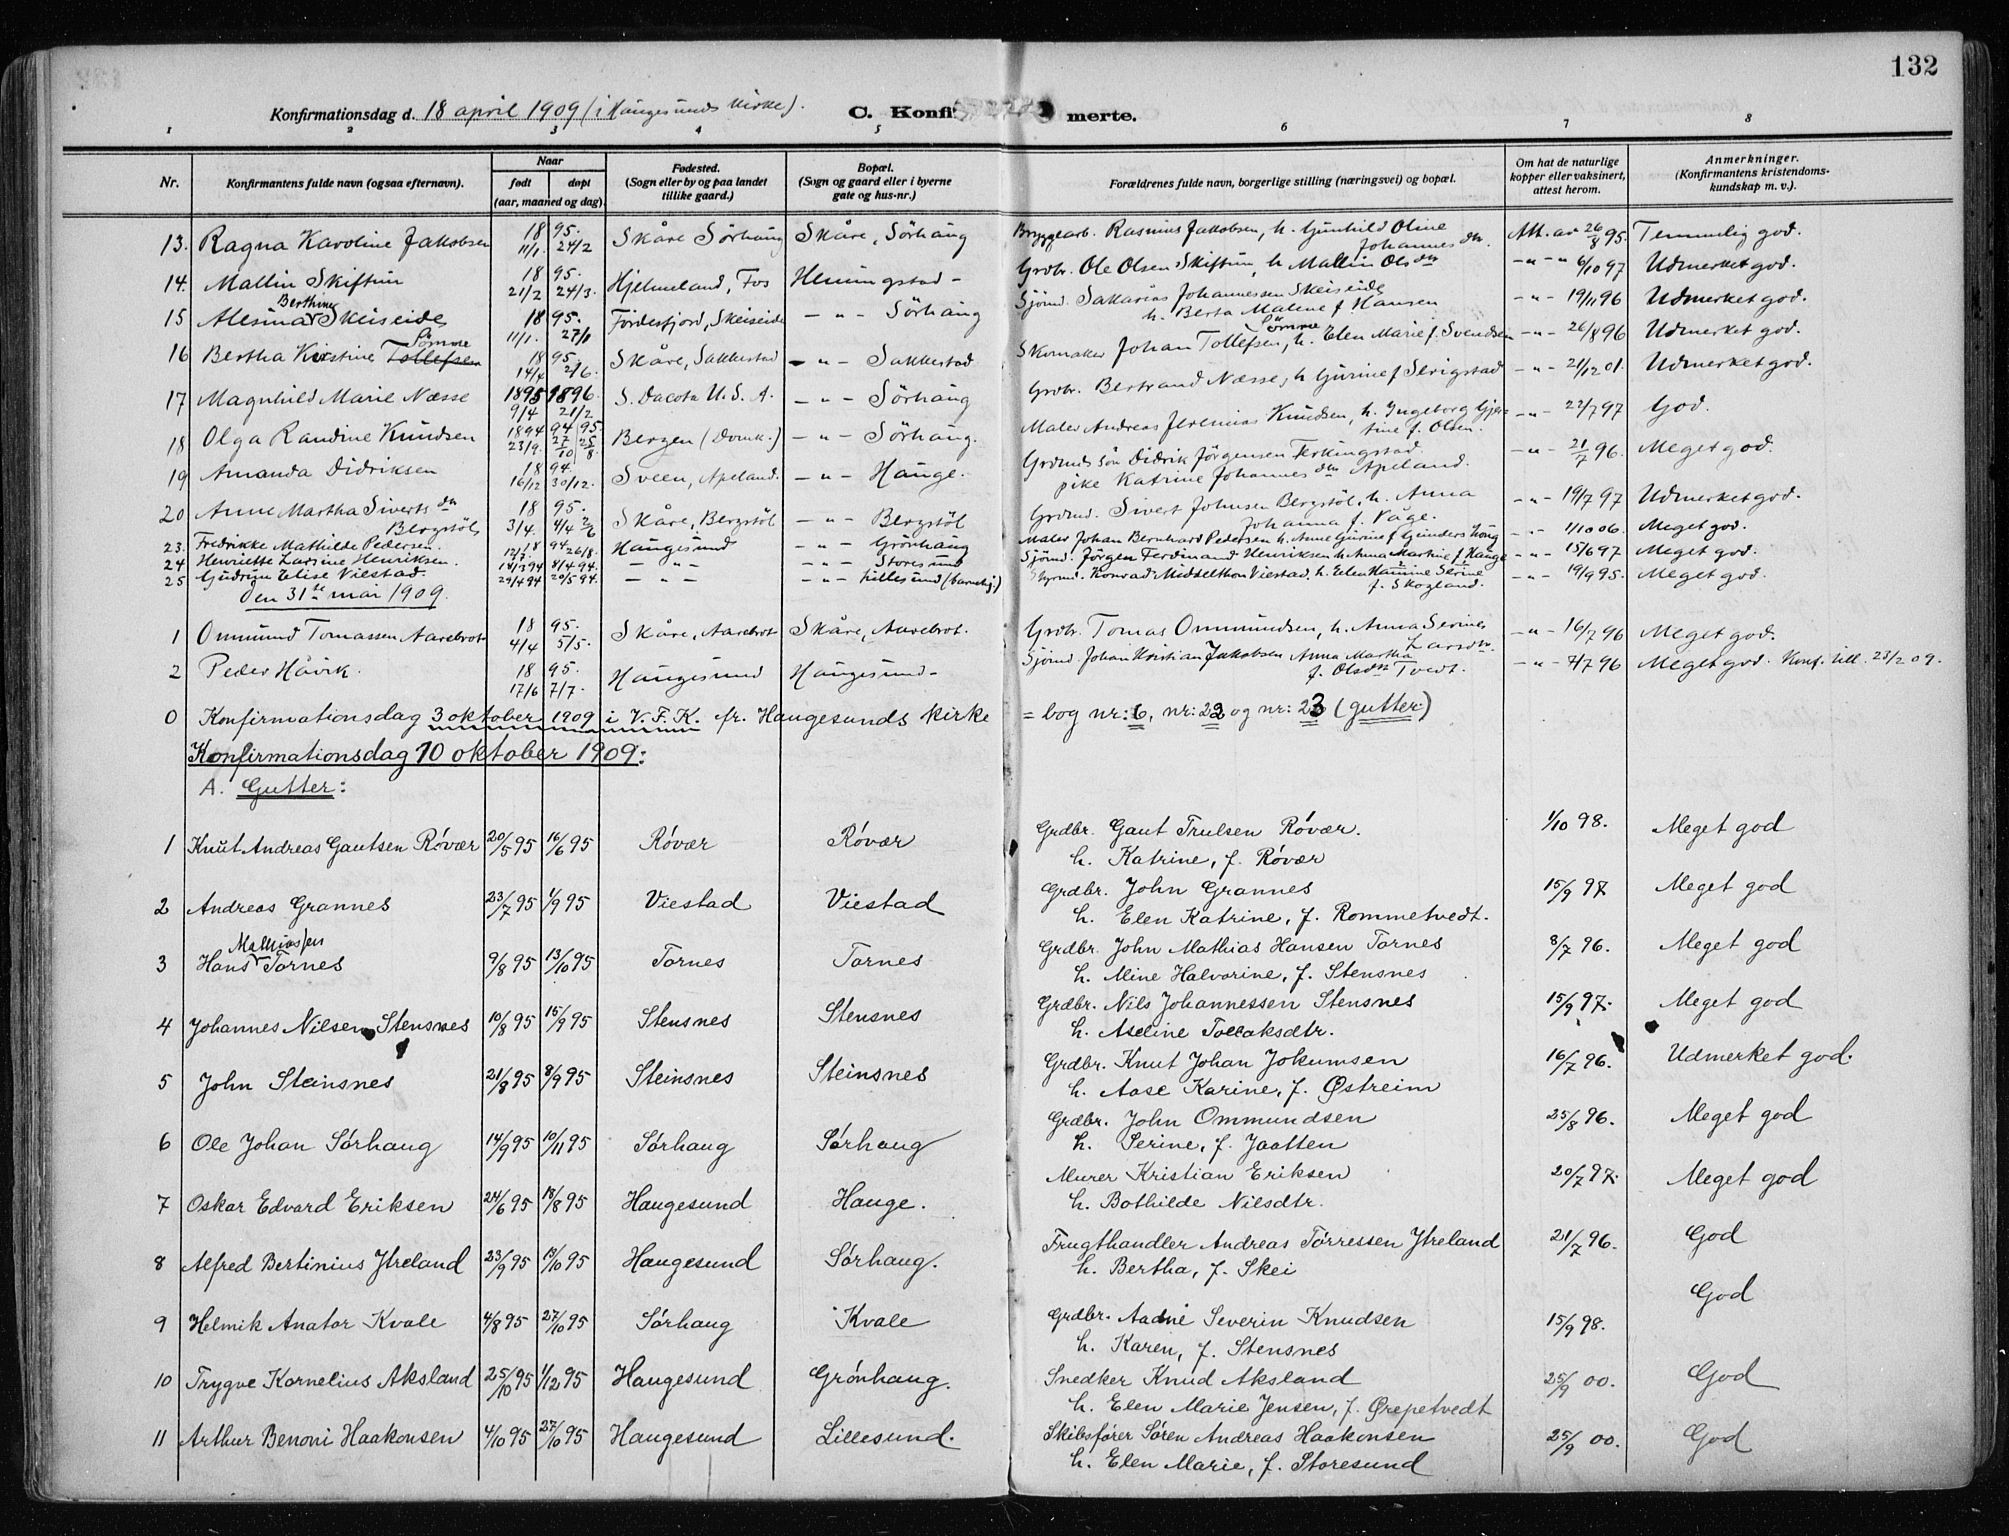 132
Konfirmationsdag d. 18 april 1909 (i Haugesunds kirke). C. Konfirmerte.
1 2 3 4 5 6 7 8
Nr. Konfirmantens fulde navn (ogsaa efternavn). Naar født døpt (aar, maaned og dag). Fødested. (Sogn eller by og paa landet tillike gaard.) Bopæl. (Sogn og gaard eller i byerne gate og hus-nr.) Forældrenes fulde navn, borgerlige stilling (næringsvei) og bopæl. Om hat de naturlige kopper eller vaksinert, attest herom. Anmerkninger. (Konfirmantens kristendomskundskap m. v.).
13. Ragna Karoline Jakobsen 18 95. 11/1. 24/2 Skåre Sörhaug Skåre, Sörhaug Bryggearb. Rasmus Jakobsen, h. Gunhild Oline Johannesdtr. Att. av 26/8 95. Temmelig god.
14. Mallin Skiftun 18 95. 21/2 24/3. Hjelmeland, Fos Hemingstad - Grdbr. Ole Olsen Skiftun, h. Mallin Olsdtr - " - " 6/10 97 Udmerket god.
15 Alesina Berthine Skeiseide 18 95. 11/1. 27/1 Fördesfjord, Skeiseide - " - Sörhaug Sjömd. Sakarias Johannessen Skeiseide h. Berta Malene f Hansen - " - 19/11 96 Udmerket god.
16 Bertha Kristine Tollefsen Sömme 18 95. 14/4 2/6. Skåre, Sakkestad - " - Sakkestad Skomaker Johan Tollefsen Sömme, h. Elen Marie f. Svendsen - " - 26/8 96 Udmerket god.
17 Magnhild Marie Næsse 1895 1896. 9/4 21/2 S. Dacota U. S. A. - " - Sörhaug Grdbr. Bertrand Næsse, h Gurine f Serigstad - " - 21/12 01. Udmerket god.
18 Olga Randine Knudsen 1894 94 95. 23/9. 27/10 25/8. Bergen (Domk.) - " - Sörhaug. Maler Andreas Jeremias Knudsen, h. Ingeborg Gjertine f. Olsen. - " - 22/7 97 God.
19 Amanda Didriksen 18 94. 16/12 30/12. Sveen, Apeland. - " - Hauge. Grdmds sön Didrik Jörgensen Ferkingstad. pike Katrine Johannesdtr Apeland. - " - 21/7 96. Meget god.
20 Anne Martha Sivertsdtr Bergstöl 18 95. 3/4. 4/4 2/6 Skåre, Bergstöl - " - Bergstöl Grdmd. Sivert Johnsen Bergstöl, h. Anna Johanna f. Våge. - " - 19/7 97 Udmerket god.
23. Fredrikke Mathilde Pedersen. 18 94 12/7. 26/8. Haugesund - " - Grönhaug Maler Johan Bernhard Pedersen h. Anne Gurine f Gunders Kong - " - 1/10 06. Meget god.
24 Henriette Larsine Henriksen. 14/3 94 8/4 94. - " - - " - Storesund Sjömd. Jörgen Ferdinand Henriksen h. Anna Martine f Hauge - " - 15/6 97 Meget god.
25 Gudrun Elise Viestad. 29/4 94 20/5 94. - " - - " - Lillesund (barnehj.) Konrad Middelthon Viestad. h. Elen Serine f. Skogland. - " - 19/9 95. Meget god.
den 31te mai 1909.
1 Ommund Tomassen Aarebrot 18 95. 4/4 5/5. Skåre, Aarebrot Skåre, Aarebrot. Grdbr. Tomas Ommundsen, h. Anna Serine Larsdtr. - " - 16/7 96 Meget god.
2 Peder Håvik. 18 95. 17/6 7/7. Haugesund Haugesund - Sjömd. Johan Kristian Jakobsen Anna Martha f. Olsdtr Tvedt. - " - 4/7 96 Meget god. Konf. till. 23/2 09.
0 Konfirmationsdag 3 oktober 1909 i V. F. K. fr. Haugesunds kirke = bog nr: 6, nr: 22 og nr: 23 (gutter)
Konfirmationsdag 10 oktober 1909:
A. Gutter:
1 Knut Andreas Gautsen Róvær 20/5 95 16/6 95 Róvær Róvær Grdbr. Gaut Trulsen Róvær. 1/10 98. Meget god
h. Katrine, f. Róvær
2 Andreas Grannes 23/7 95 1/9 95 Viestad Viestad Grdbr. John Grannes 15/9 97 Meget god
h. Elen Katrine, f. Rommetvedt.
3 Hans Mathiassen Tornes 9/8 95 13/10 95 Tornes Tornes Grdbr. John Mathias Hansen Tornes 8/7 96. Meget god
h. Mine Halvorine, f. Stensnes
4 Johannes Nilsen Stensnes 10/8 95 15/9 95 Stensnes Stensnes Grdbr. Nils Johannessen Stensnes 15/9 97. Meget god
h. Aseline Tollaksdtr.
5 John Steinsnes 21/8 95 8/9 95 Steinsnes Steinsnes Grdbr. Knut Johan Jokumsen 16/7 96. Udmerket god.
h. Aase Karine, f. Østreim
6 Ole Johan Sórhaug 14/9 95 10/11 95 Sórhaug Sórhaug Grdbr. John Ommundsen 25/8 96. Meget god
h. Serine, f. Jaatten
7 Oskar Edvard Eriksen 24/6 95 18/8 95 Haugesund Hauge. Murer Kristian Eriksen 20/7 97. Meget god
h. Bothilde Nilsdtr.
8 Alfred Bertinius Ytreland 23/9 95 13/10 95 Haugesund Sórhaug. Frugthandler Andreas Tórressen Ytreland 21/7 96. God
h. Bertha, f. Skei
9 Helmik Anator Kvale 4/8 95 27/10 95 Sórhaug Kvale Grdbr. Aadne Severin Knudsen 15/9 98. God
h. Karen, f. Stensnes
10 Trygve Kornelius Aksland 25/10 95 1/12 95 Haugesund Grónhaug. Snedker Knud Aksland 25/9 00. God
h. Elen Marie Jensen, f. Ørepetvedt
11 Arthur Benoni Haakonsen 4/10 95 27/10 95 Haugesund Lillesund. Skibsfórer Sóren Andreas Haakonsen 25/9 00. God
h. Elen Marie, f. Storesund